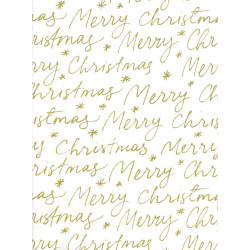 Merry Christmas
Christmas Merry Chris
Merry Christmas
Christmas Merry
Merry Christmas
Christmas Merry
Merry Christmas
Christmas Merry